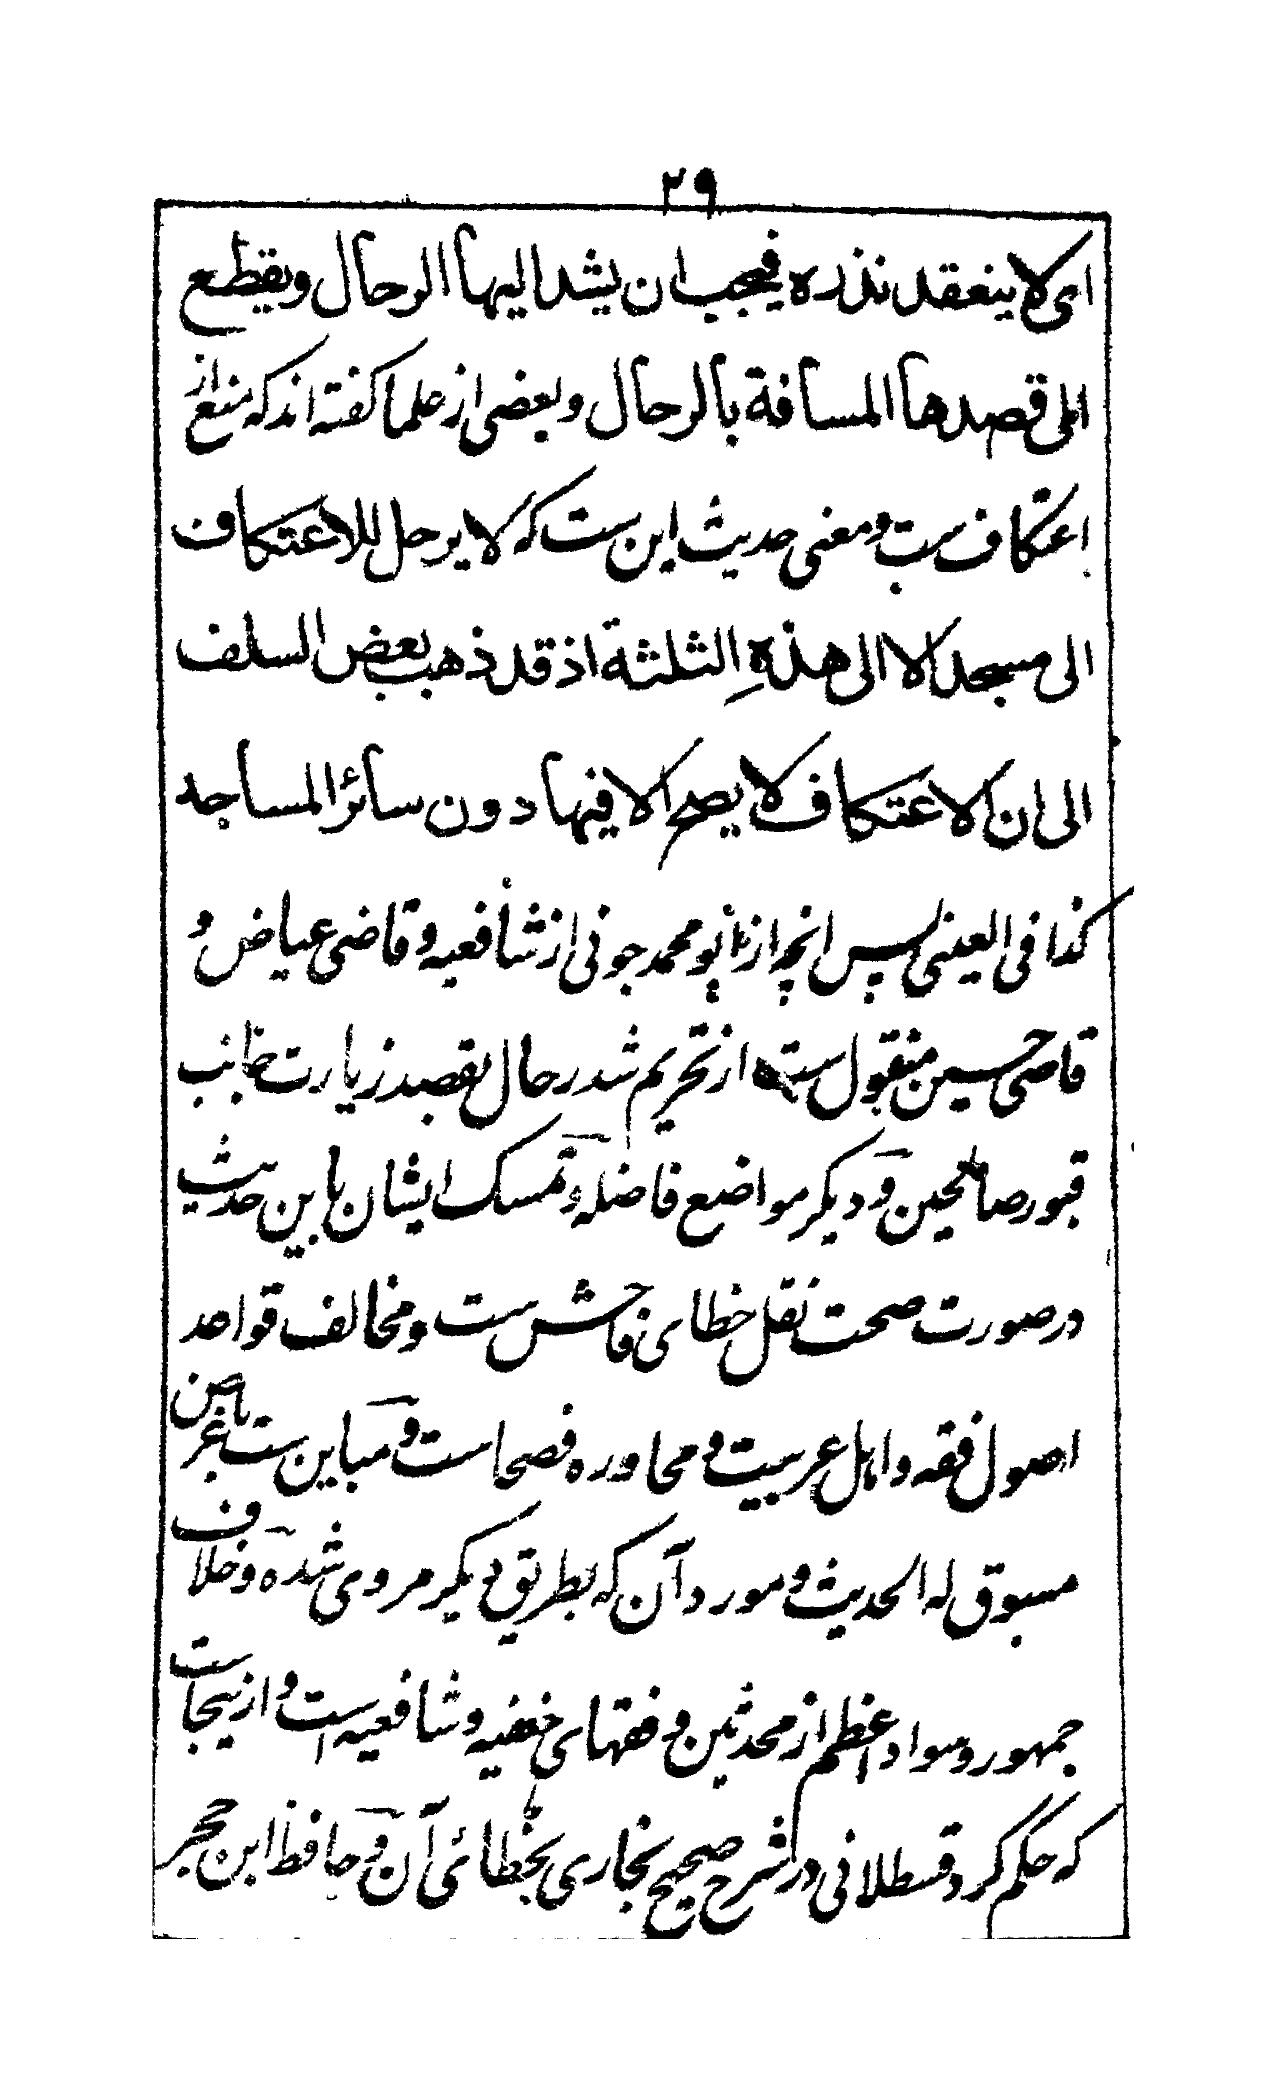 ٢٩
اى لا ينعقد نذره فيجب ان يشد اليها الرحال ويقطع
الى قصدها المسافة بالرحال وبعضى از علما كفته اند كه منع از
اعتكاف ست ومعنى حديث اين ست كه لا يرحل للاعتكاف
الى مسجد الا الى هذه الثلثة اذ قد ذهب بعض السلف
الى ان الاعتكاف لا يصح الا فيها دون سائر المساجد
كذا فى العينى پس انچه از ابو محمد جونى از شافعيه وقاضى عياض و
قاضى حسين منقول ست از تحريم شد رحال بقصد زيارت
قبور صالحين و ديكر مواضع فاضله و تمسك ايشان باين حديث
در صورت صحت نقل خطاى فاحش ست ومخالف قواعد
اصول فقه واهل عربيت و محاوره فصحاست و مباين ست باصن غرض
مسبوق له الحديث و مورد آن كه بطريق ديكر مروى شده وخلاف
جمهور وسواد اعظم از محدثين و فقهاى حنفيه وشافعيه است و ازينجاست
كه حكم كرد قسطلانى در شرح صحيح بخارى بخطائى آن و حافظ ابن حجر